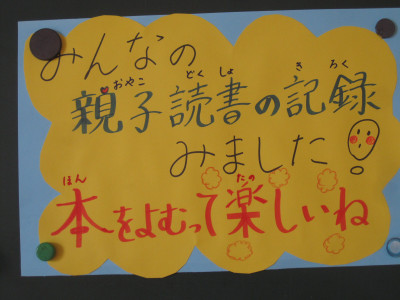 みんなの
親子読書の記録
みました!
本をよむって楽しいね